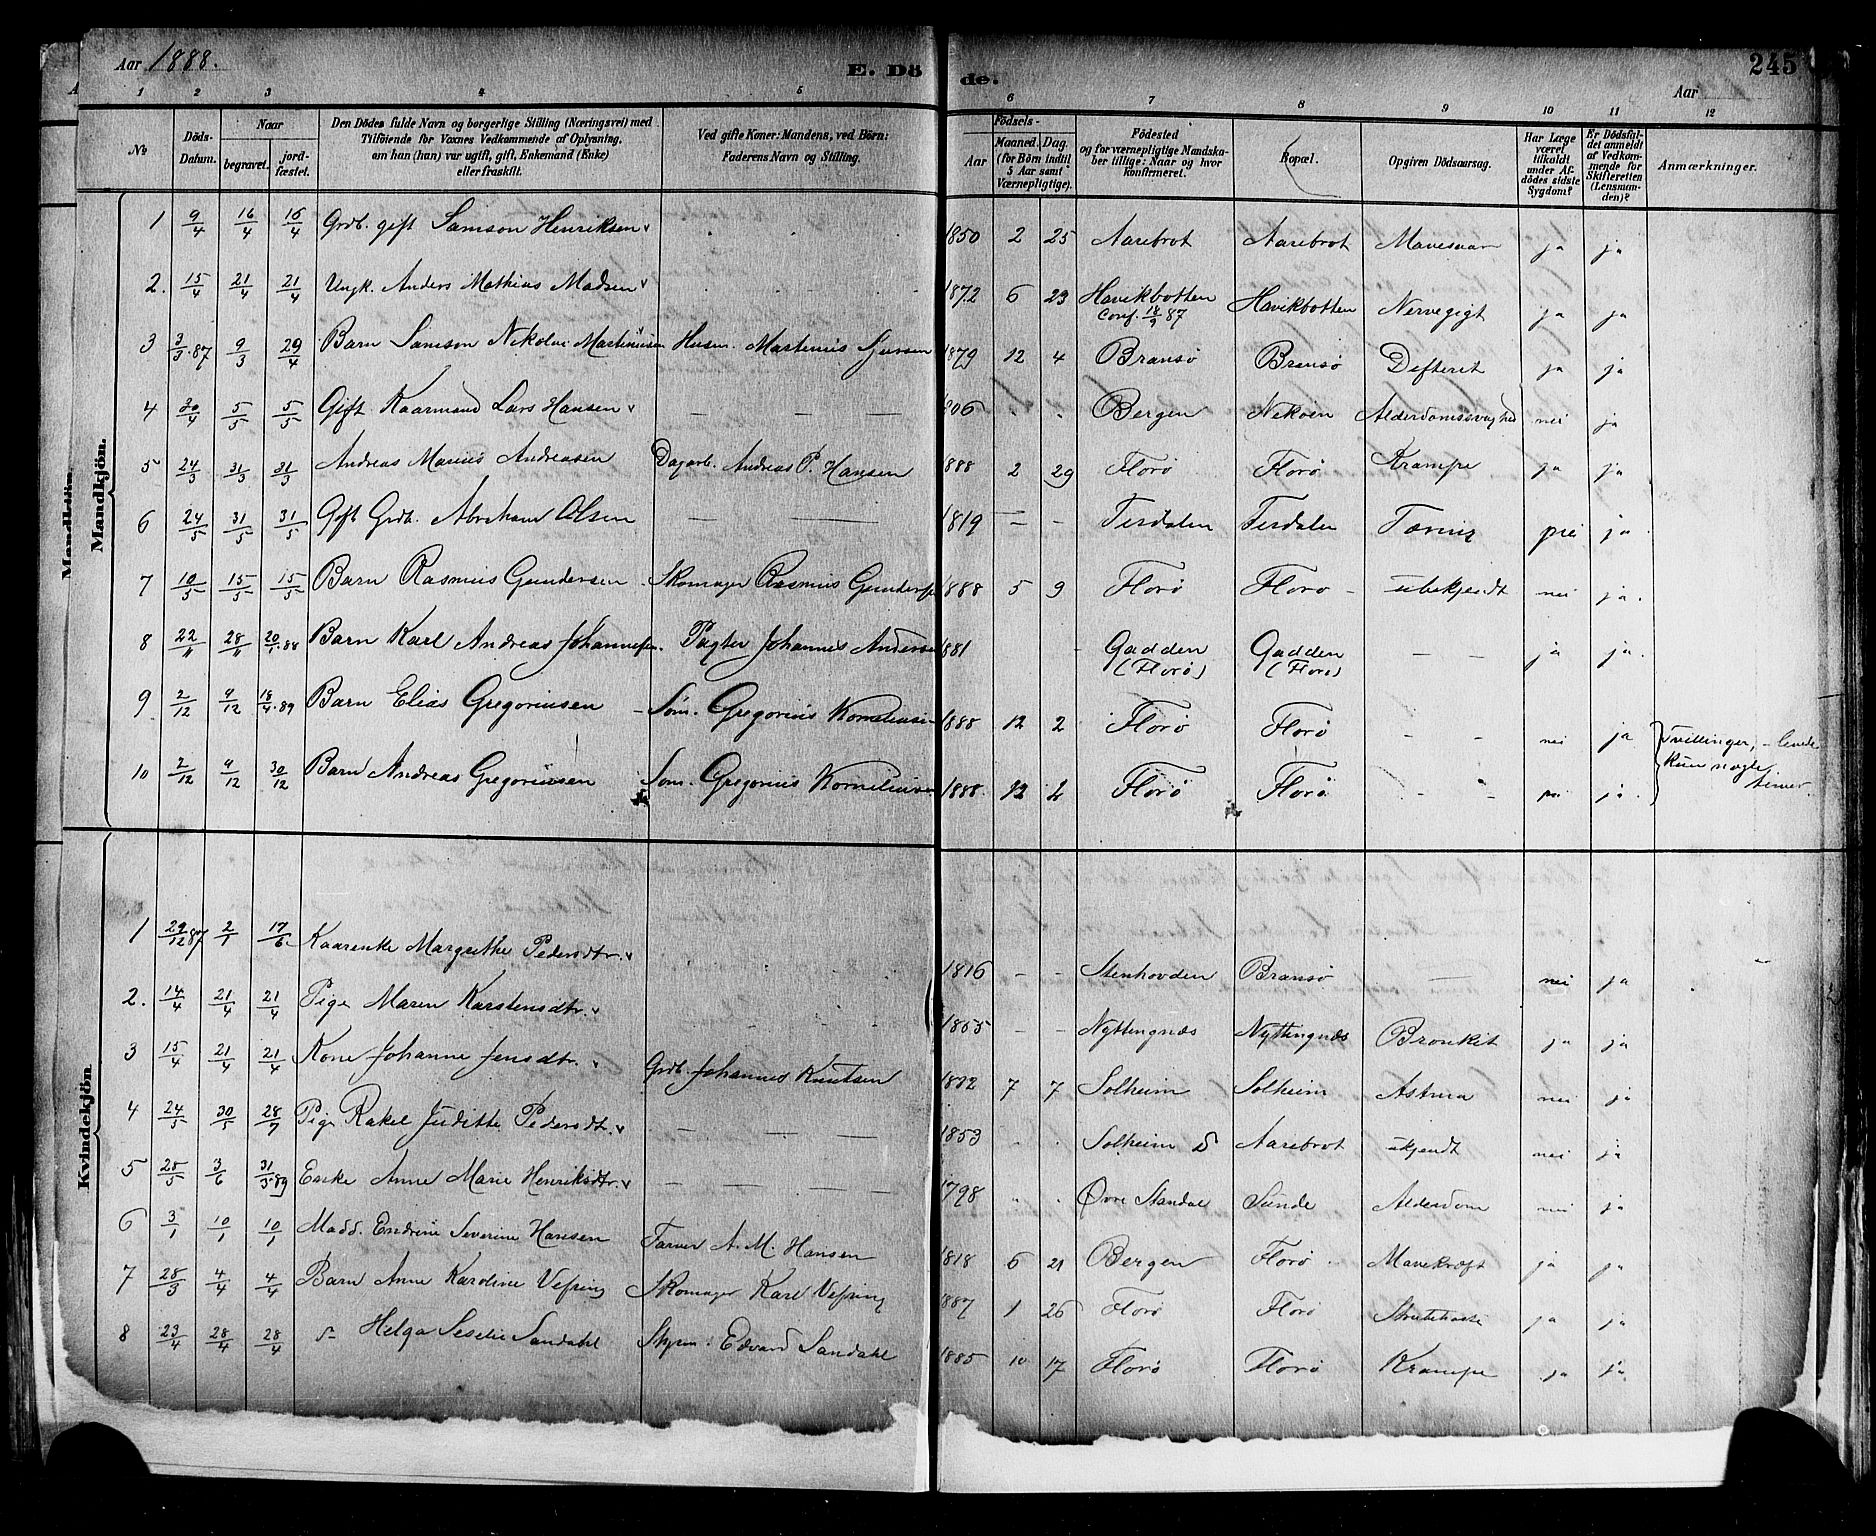 Aar 1888. E. Dö de. Aar 245
1 2 3 4 5 6 7 8 9 10 11 12
No Döds-Datum. Naar begravet. jordfæstet. Den Dödes fulde Navn og borgerlige Stilling (Næringsvei) med Tilföiende for Voxnes Vedkommende af Oplysning, om han (hun) var ugift, gift, Enkemand (Enke) eller fraskilt. Ved gifte Koner: Mandens, ved Börn: Faderens Navn og Stilling. Födsels- Aar Maaned. Dag. (for Börn indtil 5 Aar samt Værnepligtige). Födested og for værnepligtige Mandskaber tillige: Naar og hvor konfirmeret. Bopæl. Opgiven Dödsaarsag. Har Læge været tilkaldt under Afdödes sidste Sygdom? Er Dödsfaldet anmeldt af Vedkommende for Skifteretten (Lensmanden)? Anmærkninger.
Mandkjön.
1 9/4 16/4 16/4 Grdb. gift Samson Henriksen 1850 2 25 Aarebrot Aarebrot Mavesaar ja ja
2. 15/4 21/4 21/4 Ungk. Anders Mathias Madsen 1872 6 23 Havikbotten Conf. 18/9 87 Havikbotten Nervegigt ja ja
3 3/3 87 9/3 29/4 Barn Samson Nikolai Martinusen Husm. Martinus 1879 12 4 Bransö Bransö Defterit ja ja
4 30/4 5/5 5/5 Gift Kaarmand Lars Hansen — — — 806 Bergen Nekøen Alderdomssvaghed nei ja
5 24/3 31/3 31/3 Andreas Marius Andreasen Dagarb. Andreas P. Hansen 888 2 29 Florø Florø Krampe ja ja
6 24/5 31/5 31/5 Gift Grdb. Abraham Olsen — — — 1819 — — Terdalen Terdalen nei ja
7 10/5 15/5 15/5 Barn Rasmus Gundersen Skomager Rasmus Gundersen 1888 5 9 Florø Florø ubekjendt nei ja.
8 22/11 28/11 20/1 88 Barn Karl Andreas Johannesen. Pagter Johannes Andersen 1881 Gadden (Florø) Gadden (Florø) — — ja ja.
9 2/12 9/12 18/4 89 Barn Elias Gregoriusen Søm. Gregorius Korneliusen 1888 12 2 Florø Florø nei ja Tvillinger, - levede
10 2/12 9/12 30/12 Barn Andreas Gregoriusen Søm. Gregorius Korneliusen 1888. 12 2 Florø Florø nei ja. kun nogle timer.
Kvindekjön
1 29/12 87 2/1 17/6 Kaarenke Margrethe Pedersdtr. 1816 — — Stenhovden Bransø — nei ja
2. 14/4 21/4 21/4 Pige Maren Karstensdtr. 1855 — — Nyttingnæs Nyttingnæs Bronkit ja ja
3 15/4 21/4 21/4 Kone Johanne Jensdtr. Grdb. Johannes Knutsen 1822 7 7 Solheim Solheim Astma nei ja
4 24/5 30/5 28/7 Pige Rakel Juditte Pedersdtr. — — — 1853 Solheim Aarebrot ukjendt nei ja
5 28/5 3/6 31/5 89 Enke Anne Marie Henriksdtr. — — — 1798 Øvre Standal Sunde Alderdom nei ja
6 3/1 10/1 10/1 Madd. Endrine Severine Hansen Farver A. M. Hansen 1818 6 21 Bergen Florø Mavekræft ja ja
7 28/3 4/4 4/4 Barn Anne Karoline Vefring Skomager Karl Vefring 1887 1 26 Florø Florø Strubehoste ja ja
8 23/4 28/4 28/4 Helga Seselie Sandahl Edvard Sandahl 1885 10 17 Florø Florø Krampe ja ja